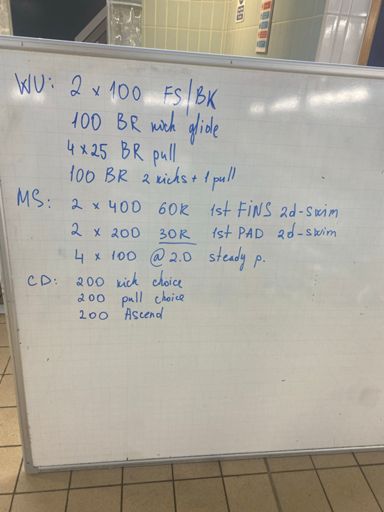 WU: 2 x 100 FS/BK
100 BR kick glide
4 x 25 BR pull
100 BR 2 kicks + 1 pull
MS: 2 x 400 60R 1st FINS 2d-swim
2 x 200 30R 1st PAD 2d-swim
4 x 100 @ 2.0 steady p.
CD: 200 kick choice
200 pull choice
200 Ascend